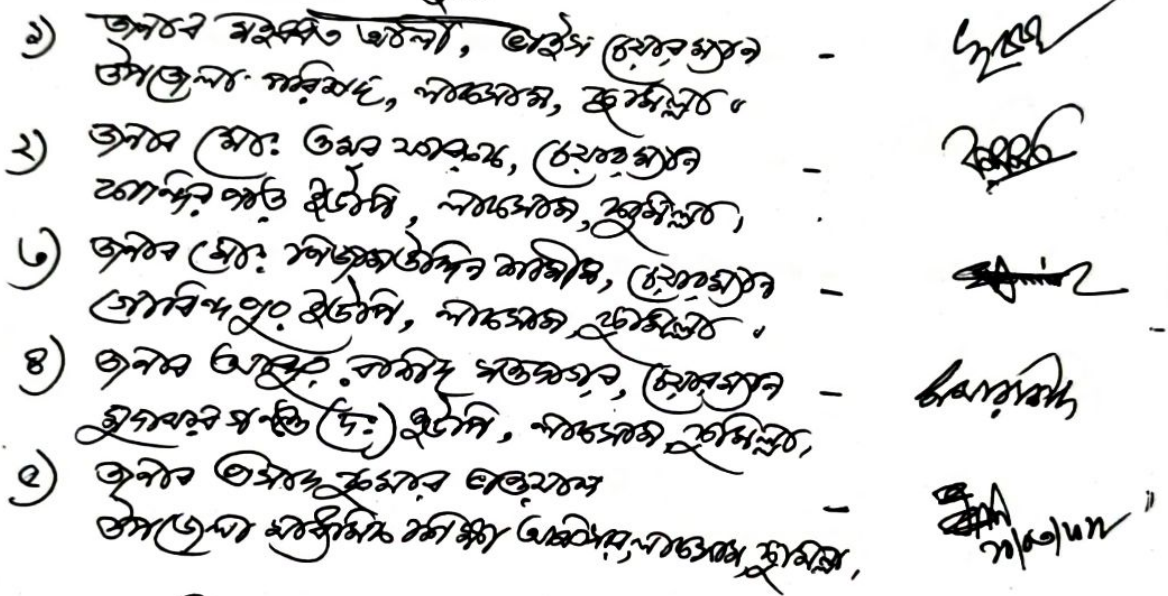 ১) জনাব মহব্বত আলী, ভাইস চেয়ারম্যান -
উপজেলা পরিষদ, লাকসাম, কুমিল্লা।
২) জনাব মোঃ ওমর ফারুক, চেয়ারম্যান -
কান্দির পাড় ইউপি, লাকসাম, কুমিল্লা,
৩) জনাব মোঃ নিজামউদ্দিন শামীম, চেয়ারম্যান -
গোবিন্দপুর ইউপি, লাকসাম, কুমিল্লা।
৪) জনাব আব্দুর রাশীদ সওদাগর, চেয়ারম্যান -
মুদাফরগঞ্জ (দঃ) ইউপি, লাকসাম, কুমিল্লা,
৫) জনাব কুমার -
উপজেলা মাধ্যমিক শিক্ষা অফিসার, লাকসাম, কুমিল্লা,